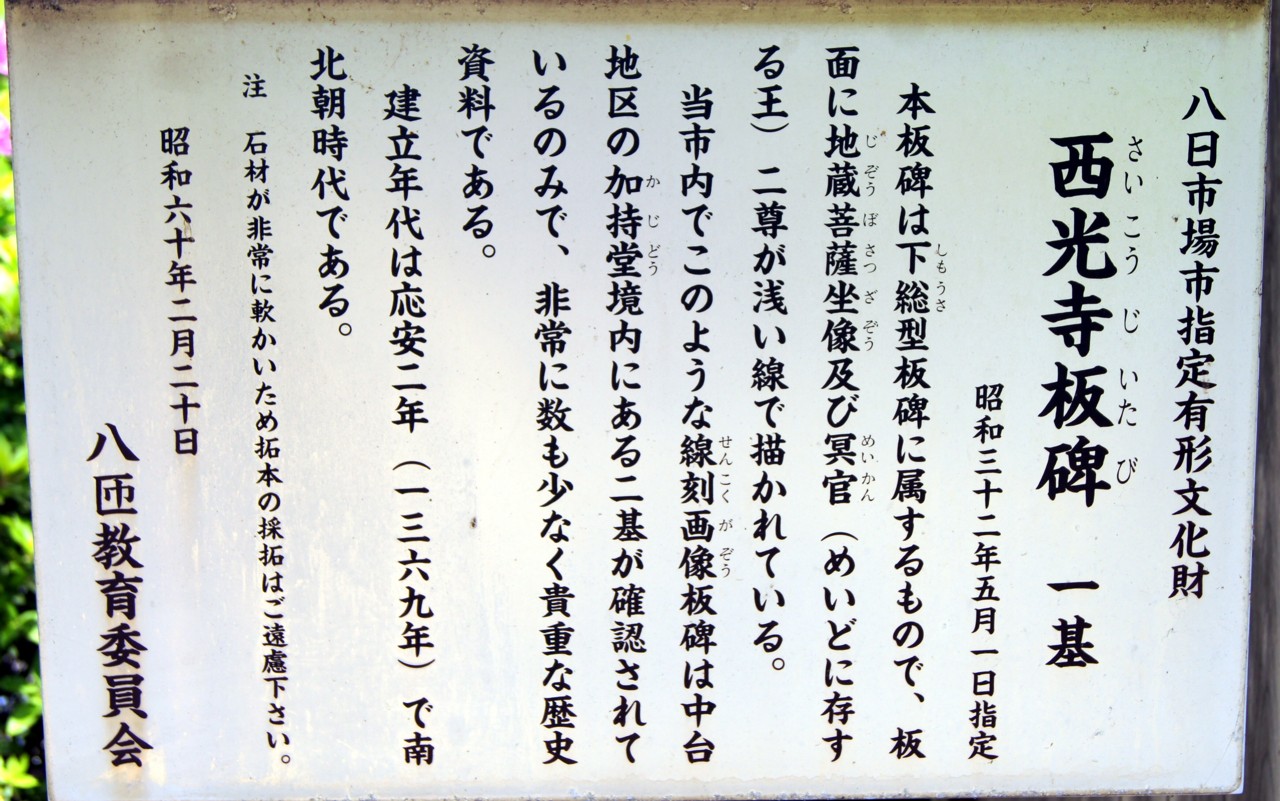 八日市場市指定有形文化財
西光寺板碑　一基
さいこうじいたび
昭和三十二年五月一日指定
本板碑は下総型板碑に属するもので、板
しもうさ
面に地蔵菩薩坐像及び冥官（めいどに存す
じぞうぼさつざぞう　めいかん
る王）二尊が浅い線で描かれている。
当市内でこのような線刻画像板碑は中台
せんこくがぞう
地区の加持堂境内にある二基が確認されて
かじどう
いるのみで、非常に数も少なく貴重な歴史
資料である。
建立年代は応安二年（一三六九年）で南
北朝時代である。
注　石材が非常に軟かいため拓本の採拓はご遠慮下さい。
昭和六十年二月二十日
八匝教育委員会